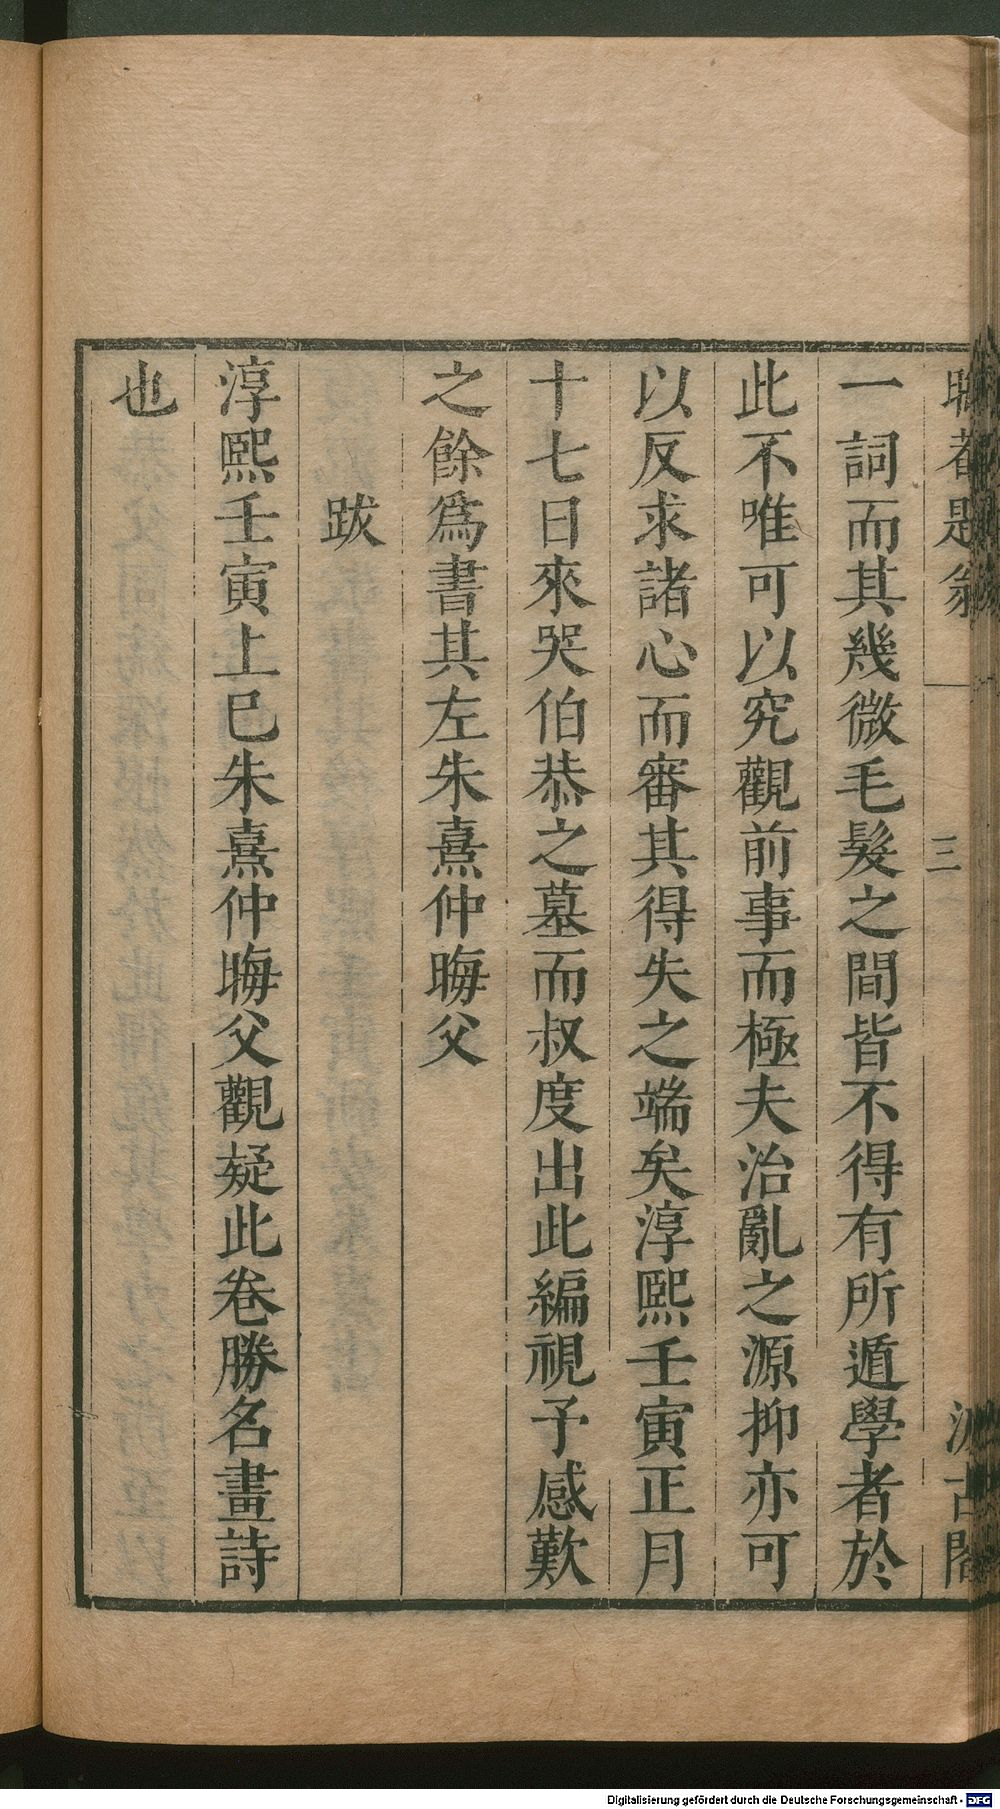 晦菴題跋
三
汲古閣
一詞而其幾微毛髮之間皆不得有所遁學者於
此不唯可以究觀前事而極夫治亂之源抑亦可
以反求諸心而審其得失之端矣淳熙壬寅正月
十七日來哭伯恭之墓而叔度出此編視予感歎
之餘爲書其左朱熹仲晦父
跋
淳熙壬寅上巳朱熹仲晦父觀疑此卷勝名畫詩
也
Digitalisierung gefördert durch die Deutsche Forschungsgemeinschaft - DFG